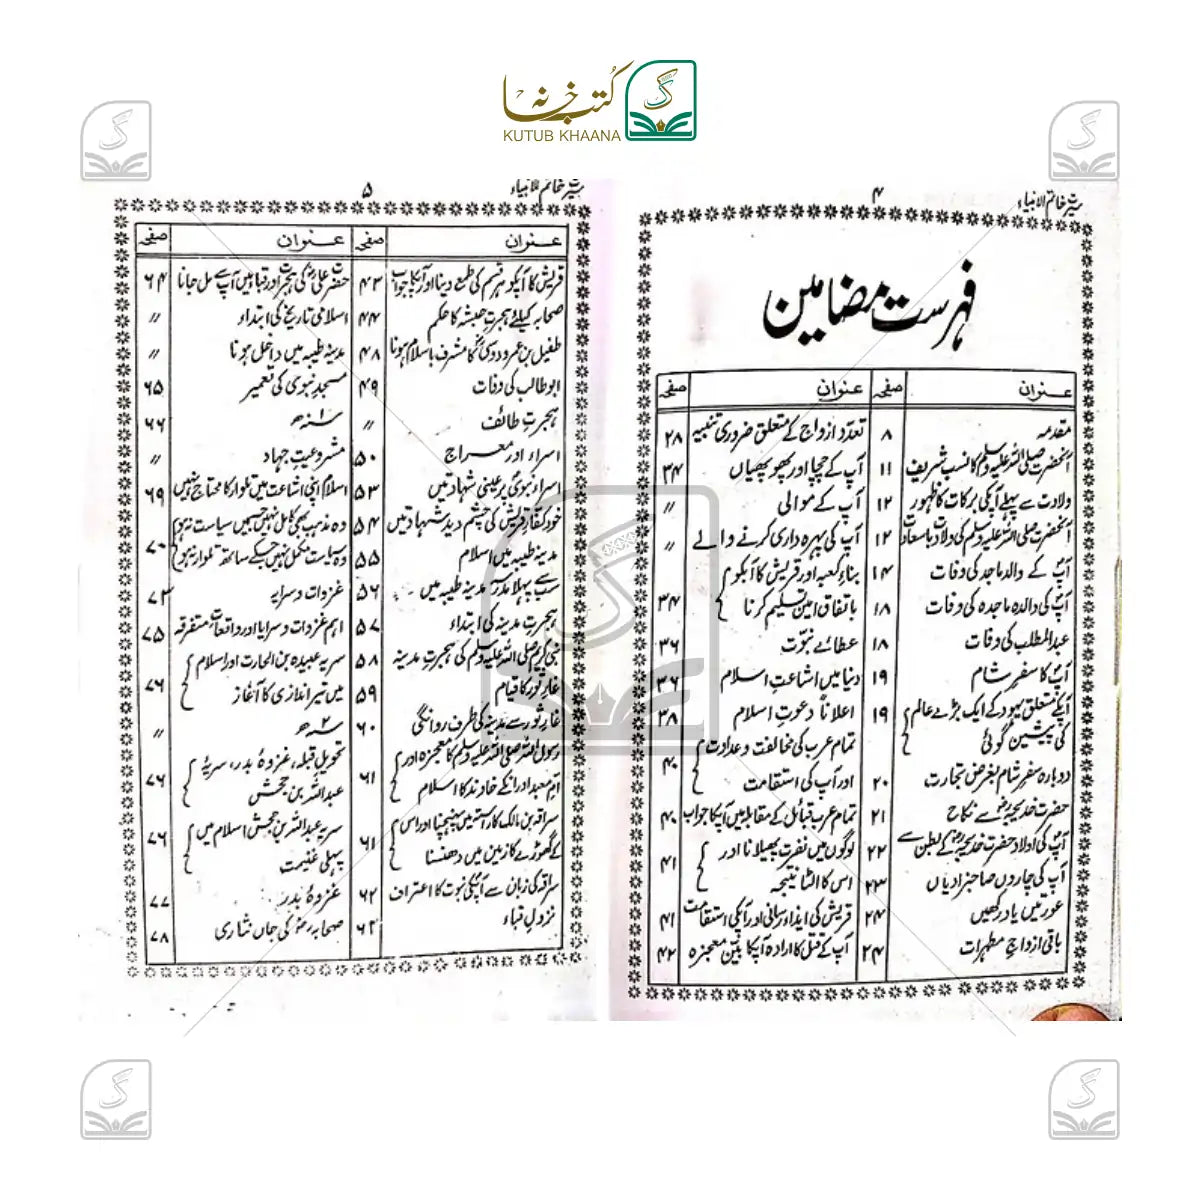 کتب خانہ
KUTUB KHAANA
سیرت خاتم الانبیاء
۴
فہرست مضامین
عنوان
صفحہ
مقدمہ
۸
آنحضرت صلی اللہ علیہ وسلم کا نسب شریف
۱۱
ولادت سے پہلے آپکی برکات کا ظہور
۱۲
آنحضرت صلی اللہ علیہ وسلم کی ولادت باسعادت
۱۲
آپ کے والد ماجد کی وفات
۱۴
آپ کی والدہ ماجدہ کی وفات
۱۸
عبدالمطلب کی وفات
۱۸
آپ کا سفر شام
۱۹
آپکے متعلق یہود کے ایک بڑے عالم
کی پیشین گوئی
۱۹
دوبارہ سفر شام بغرض تجارت
۲۰
حضرت خدیجہؓ سے نکاح
۲۱
آپ کی اولاد حضرت خدیجہؓ کے بطن سے
۲۲
آپ کی چاروں صاحبزادیاں
۲۳
عورتیں یاد رکھیں
۲۴
باقی ازواج مطہرات
۲۴
عنوان
صفحہ
تعدد ازواج کے متعلق ضروری تنبیہ
۲۸
آپ کے چچا اور پھوپھیاں
۳۴
آپ کے موالی
〃
آپ کی پہرہ داری کرنے والے
〃
بناء کعبہ اور قریش کا آپکو
باتفاق امین تسلیم کرنا
۳۴
عطائے نبوّت
۳۶
دنیا میں اشاعتِ اسلام
۳۶
اعلاناً دعوتِ اسلام
۳۸
تمام عرب کی مخالفت و عداوت
اور آپ کی استقامت
۴۰
تمام عرب قبائل کے مقابلہ میں آپکا جواب
۴۰
لوگوں میں نفرت پھیلانا اور
اس کا الٹا نتیجہ
۴۱
قریش کی ایذا رسانی اور آپکی استقامت
۴۱
آپ کے قتل کا ارادہ آپکا بیّن معجزہ
۴۲
سیرت خاتم الانبیاء
۵
عنوان
صفحہ
قریش کا آپکو ہر قسم کی طمع دینا اور آپکا جواب
۴۳
صحابہ کیلئے ہجرتِ حبشہ کا حکم
۴۴
طفیل بن عمرو دوسیؓ کا مشرف باسلام ہونا
۴۸
ابوطالب کی وفات
۴۹
ہجرتِ طائف
〃
اسراء اور معراج
۵۰
اسراء نبوی پر عینی شہادتیں
۵۳
خود کفار قریش کی چشم دید شہادتیں
۵۴
مدینہ طیبہ میں اسلام
۵۵
سب پہلا مدرسہ مدینہ طیبہ میں
۵۶
ہجرتِ مدینہ کی ابتداء
۵۷
نبی کریم صلی اللہ علیہ وسلم کی ہجرتِ مدینہ
۵۸
غارِ ثور کا قیام
۵۹
غارِ ثور سے مدینہ کی طرف روانگی
۶۰
رسول اللہ صلی اللہ علیہ وسلم کا معجزہ اور
ام معبد اور انکے خاوند کا اسلام
۶۱
سراقہ بن مالک کا راستہ میں پہنچنا اور اس
کے گھوڑے کا زمین میں دھنسنا
۶۱
سراقہ کی زبان سے آپکی نبوت کا اعتراف
۶۲
نزولِ قباء
۶۲
عنوان
صفحہ
حضرت علیؓ کی ہجرت اور قبا میں آپ سے مل جانا
۶۴
اسلامی تاریخ کی ابتداء
〃
مدینہ طیبہ میں داخل ہونا
〃
مسجد نبوی کی تعمیر
۶۵
سنہ ۱ھ
۶۶
مشروعیتِ جہاد
〃
اسلام اپنی اشاعت میں تلوار کا محتاج نہیں
۶۹
وہ مذہب بھی کامل نہیں جسمیں سیاست نہ ہو
وہ سیاست مکمل نہیں جسکے ساتھ تلوار نہ ہو
۷۰
غزوات و سرایہ
۷۳
اہم غزوات و سرایا اور واقعات متفرقہ
۷۵
سریہ عبیدہ بن الحارث اور اسلام
میں تیر اندازی کا آغاز
۷۶
سنہ ۲ھ
〃
تحویلِ قبلہ، غزوۂ بدر، سریہ
عبداللہ بن جحش
۷۶
سریہ عبداللہ بن جحش اسلام میں
پہلی غنیمت
۷۶
غزوۂ بدر
۷۷
صحابہؓ کی جاں نثاری
۷۸